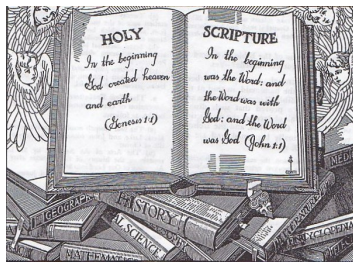 HOLY
In the beginning
God created heaven
and earth
(Genesis 1:1)
SCRIPTURE
In the beginning
was the Word: and
the Word was with
God: and the Word
was God (John 1:1)
GEOGRAPH
HISTORY
AL SCIENCE
MATHEMAT
MEDI
ENCYCLOPEDIA